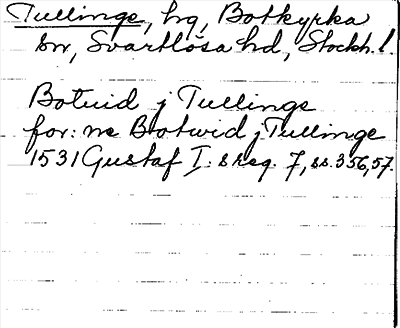 Tullinge, hg, Botkyrka
sn, Svartlösa hd, Stockh. l.
Botuid j Tullinge
for: ne Botwid j Tullinge
1531 Gustaf I: s reg. 7, ss. 356, 57.